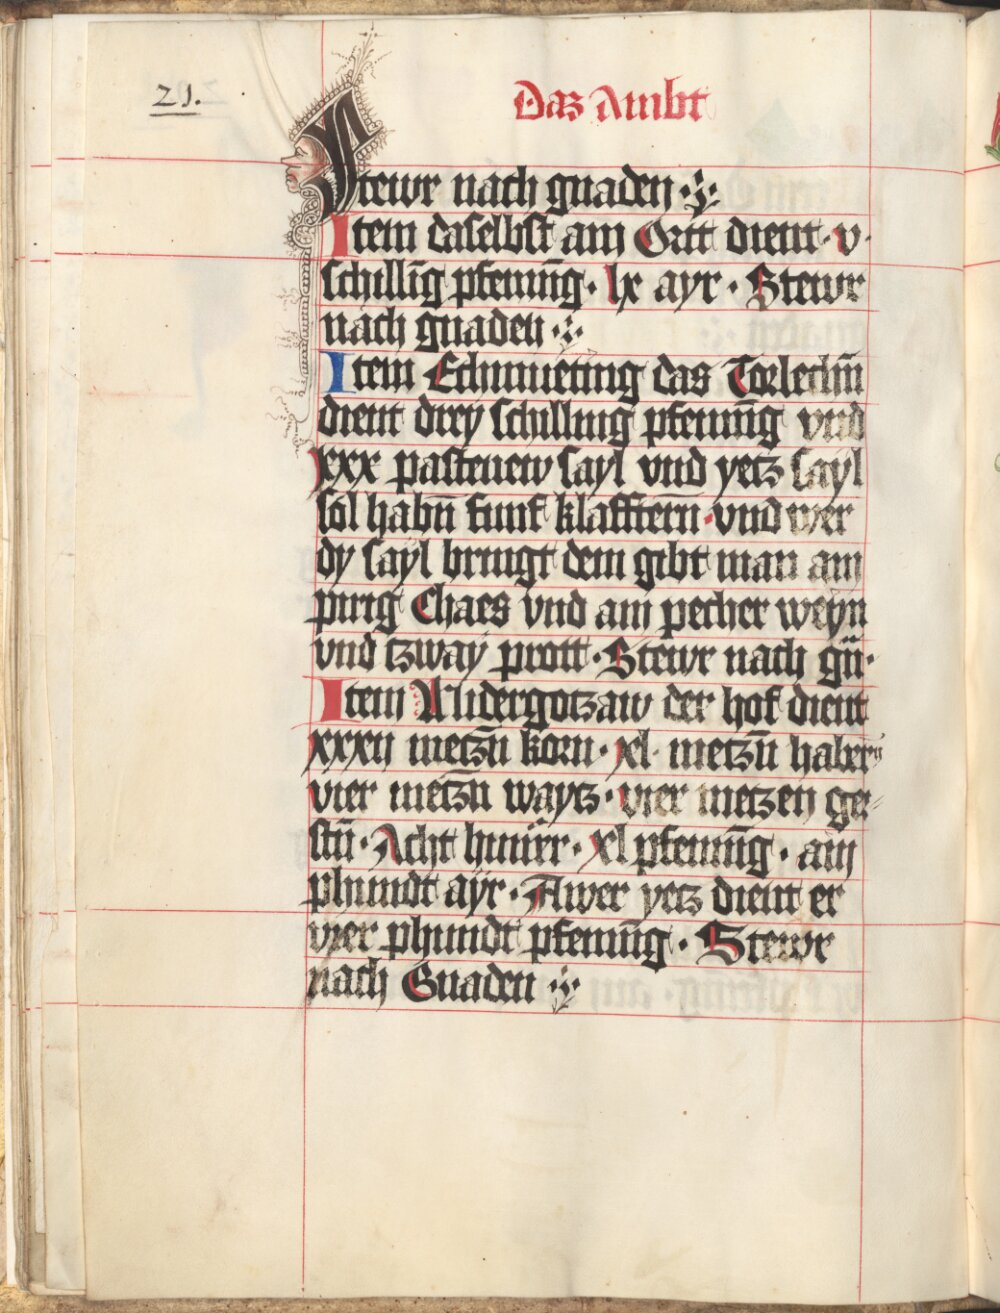 21.
Das Ambt
Stewr nach gnaden
Item daselbst am Ortt dient · v ·
schilling pfeninḡ · lx ayr · Stewr
nach gnaden
Item das Torlechn̄
dient drey schilling pfeninḡ vnd
xxx pastenew sayl vnd yetz sayl
sol habn̄ funf klafftern̄ · vnd wer
dy sayl bringt dem gibt man am
pirig Chaes vnd am pecher weyn
vnd tzway prott · Stewr nach gn̄ ·
Item Nidergotzaw der hof dient
xxxii metzn̄ korn · xl · metzn̄ habern̄
vier metzn̄ waytz · vier metzen ger⸗
stn̄ · Acht hunrr · xl pfeninḡ · ain
phundt ayr · Awer yetz dient er
vier phundt pfeninḡ · Stewr
nach Gnaden